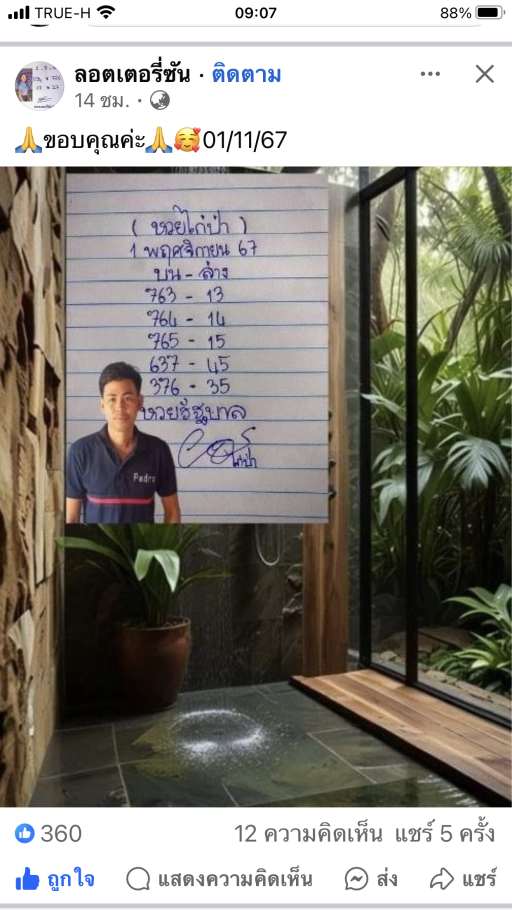 TRUE-H 09:07 88%
ลอตเตอรี่ซัน · ติดตาม
14 ชม. ·
🙏ขอบคุณค่ะ🙏🥰01/11/67
( หวยไก่ป่า )
1 พฤศจิกายน 67
บน - ล่าง
763 - 13
764 - 14
765 - 15
637 - 45
376 - 35
หวยรัฐบาล
ไก่ป่า
Pedro
360 12 ความคิดเห็น แชร์ 5 ครั้ง
ถูกใจ แสดงความคิดเห็น ส่ง แชร์